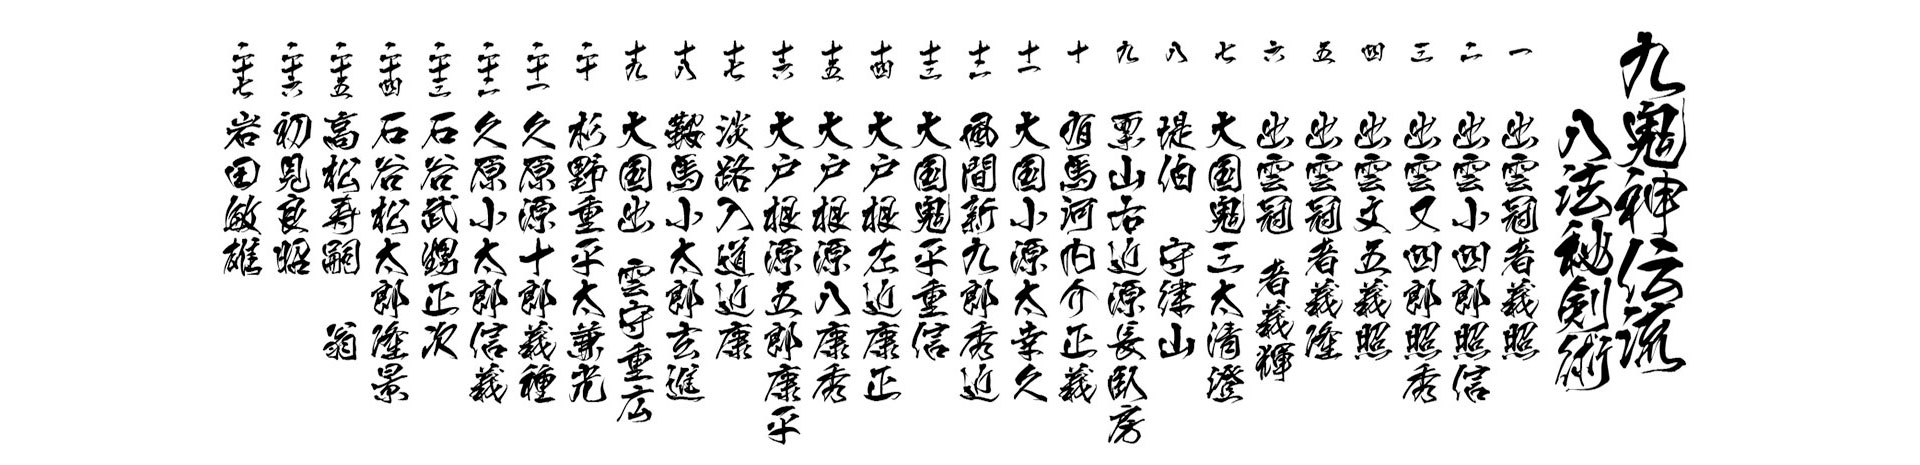 九鬼神伝流
八法秘剣術
一 出雲冠者義照
二 出雲小四郎照信
三 出雲又四郎照秀
四 出雲文五義照
五 出雲冠者義隆
六 出雲冠者義輝
七 大国鬼三太清澄
八 堤伯 守律山
九 栗山右近源長臥房
十 有馬河内介正義
十一 大国小源太幸久
十二 風間新九郎秀近
十三 大国鬼平重信
十四 大戸根左近康正
十五 大戸根源八康秀
十六 大戸根源五郎康平
十七 淡路入道近康
十八 鞍馬小太郎玄進
十九 大国出雲守重広
二十 杉野重平太兼光
二十一 久原源十郎義種
二十二 久原小太郎信義
二十三 石谷武甥正次
二十四 石谷松太郎隆景
二十五 高松寿嗣 翁
二十六 初見良昭
二十七 岩田敏雄